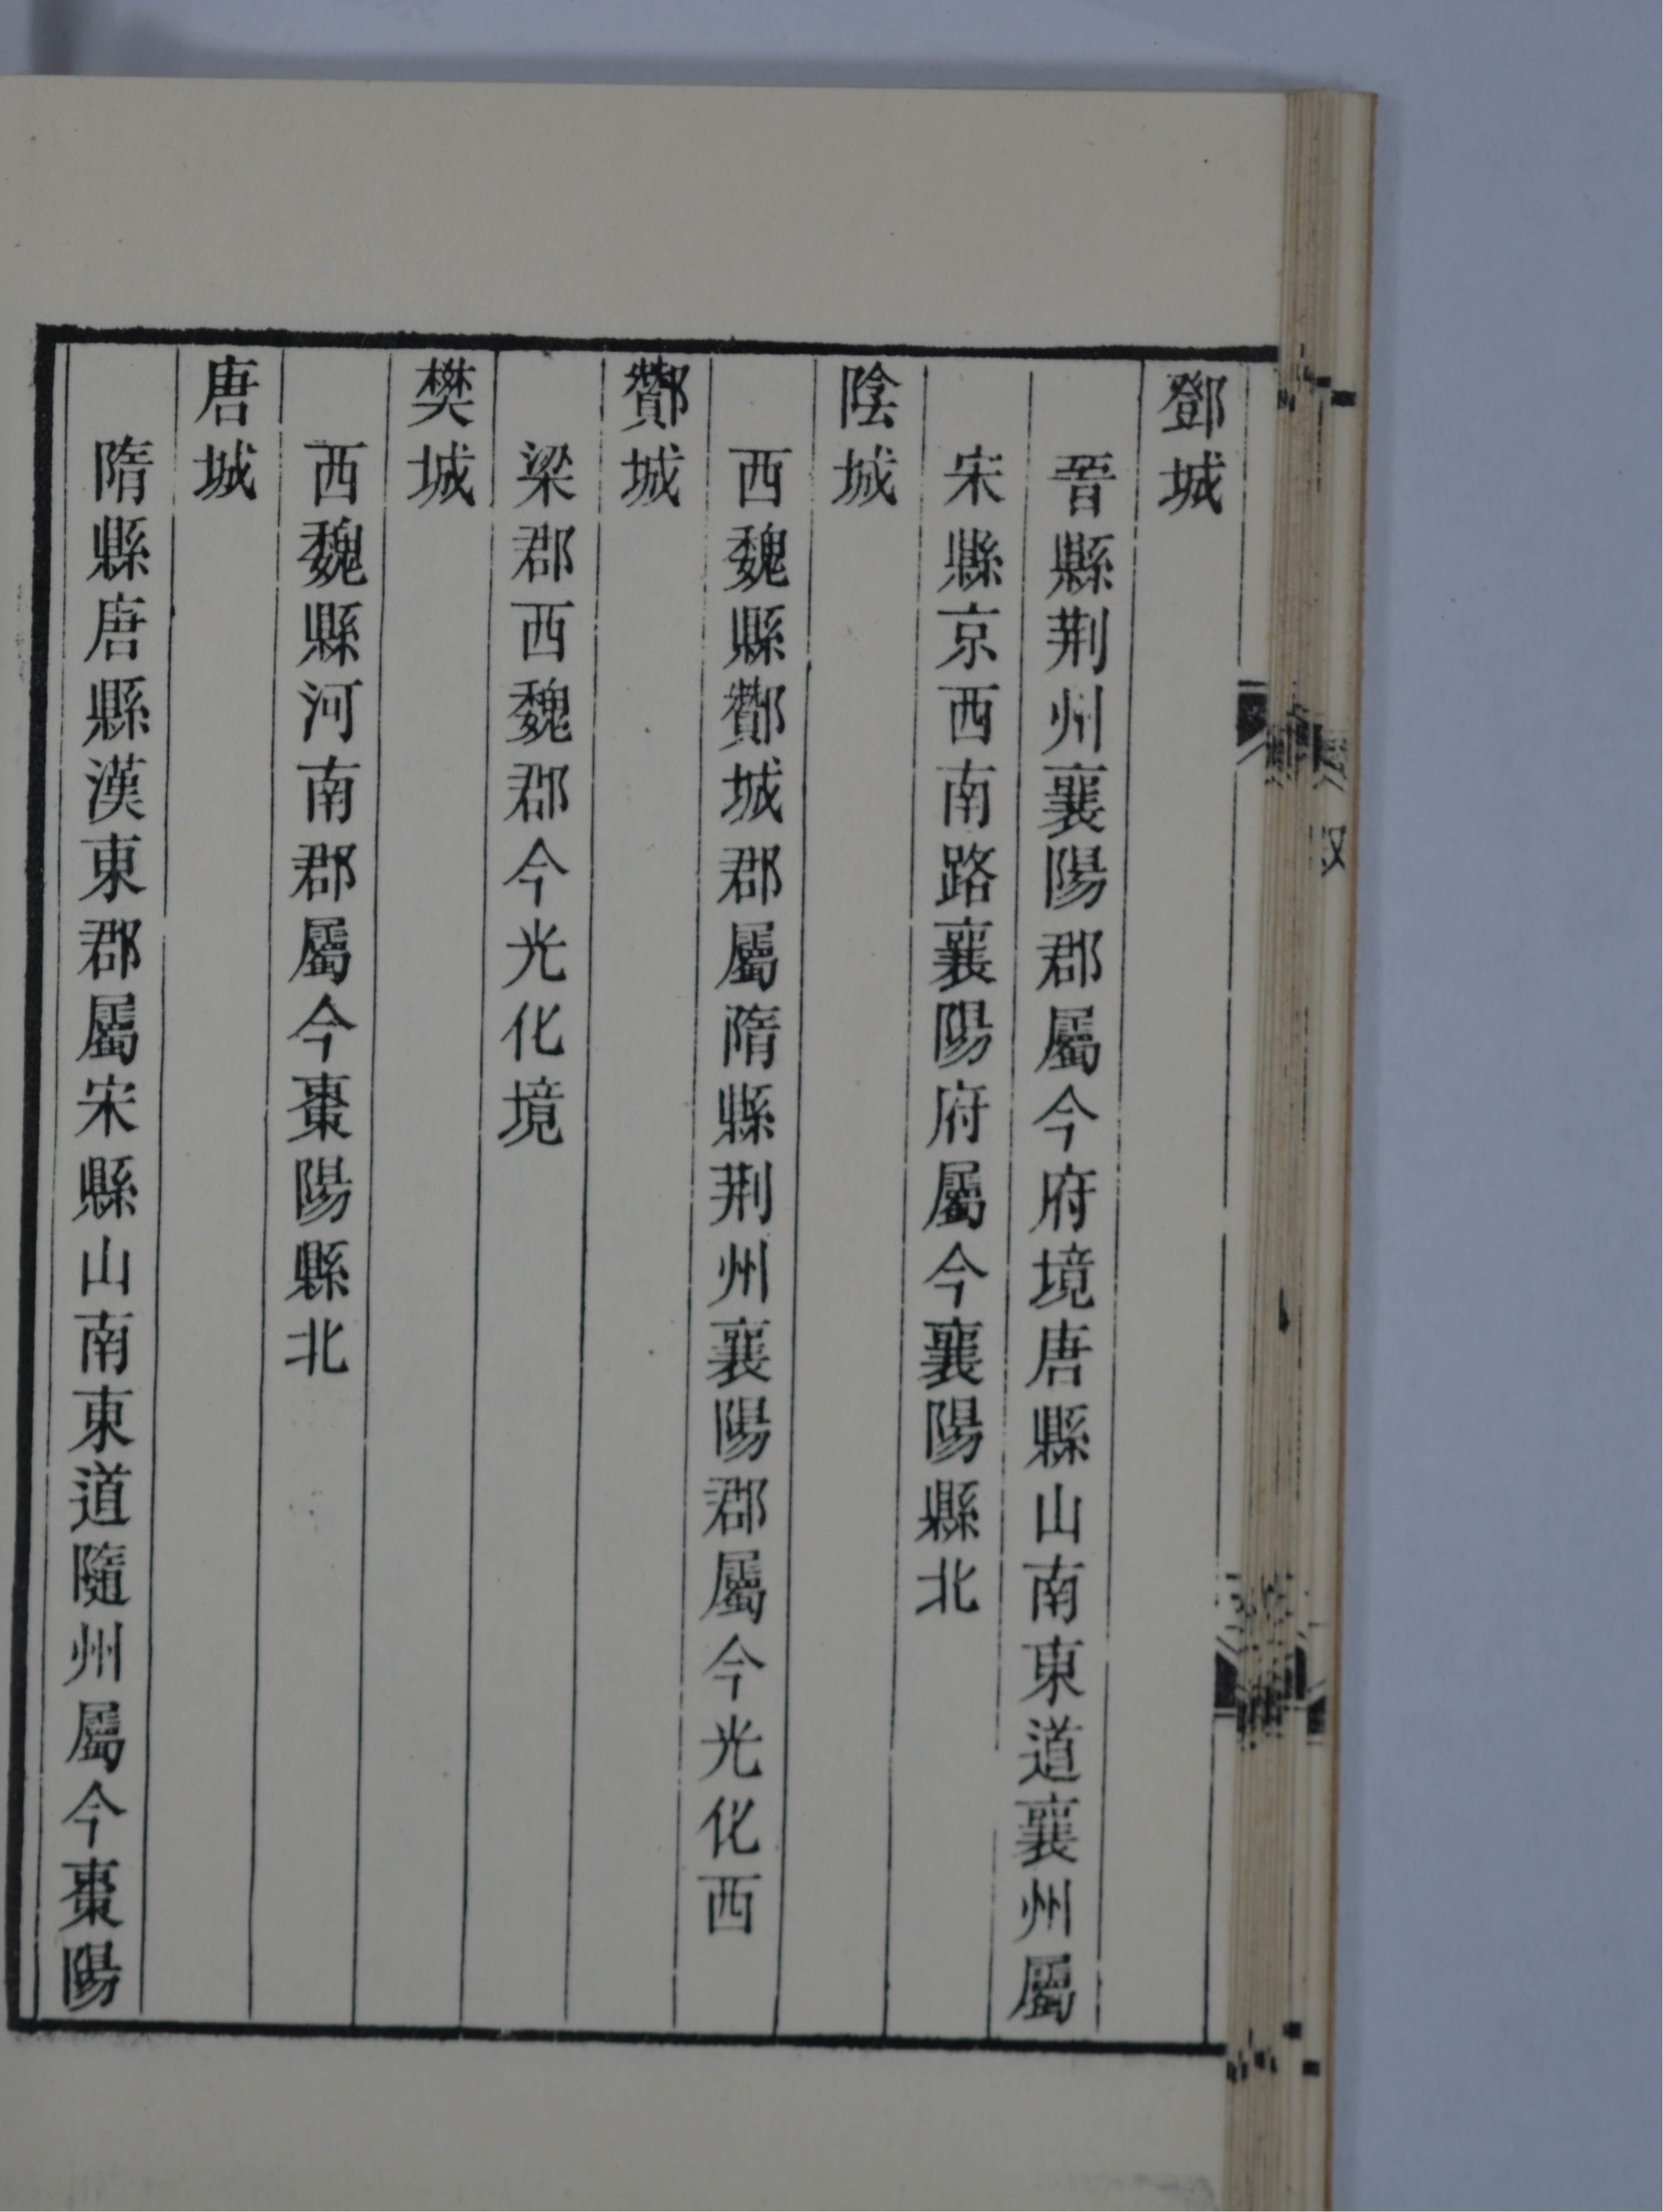 鄧城
晉縣荆州襄陽郡屬今府境唐縣山南東道襄州屬
宋縣京西南路襄陽府屬今襄陽縣北
陰城
西魏縣酇城郡屬隋縣荆州襄陽郡屬今光化西
酇城
梁郡西魏郡今光化境
樊城
西魏縣河南郡屬今棗陽縣北
唐城
隋縣唐縣漢東郡屬宋縣山南東道隨州屬今棗陽